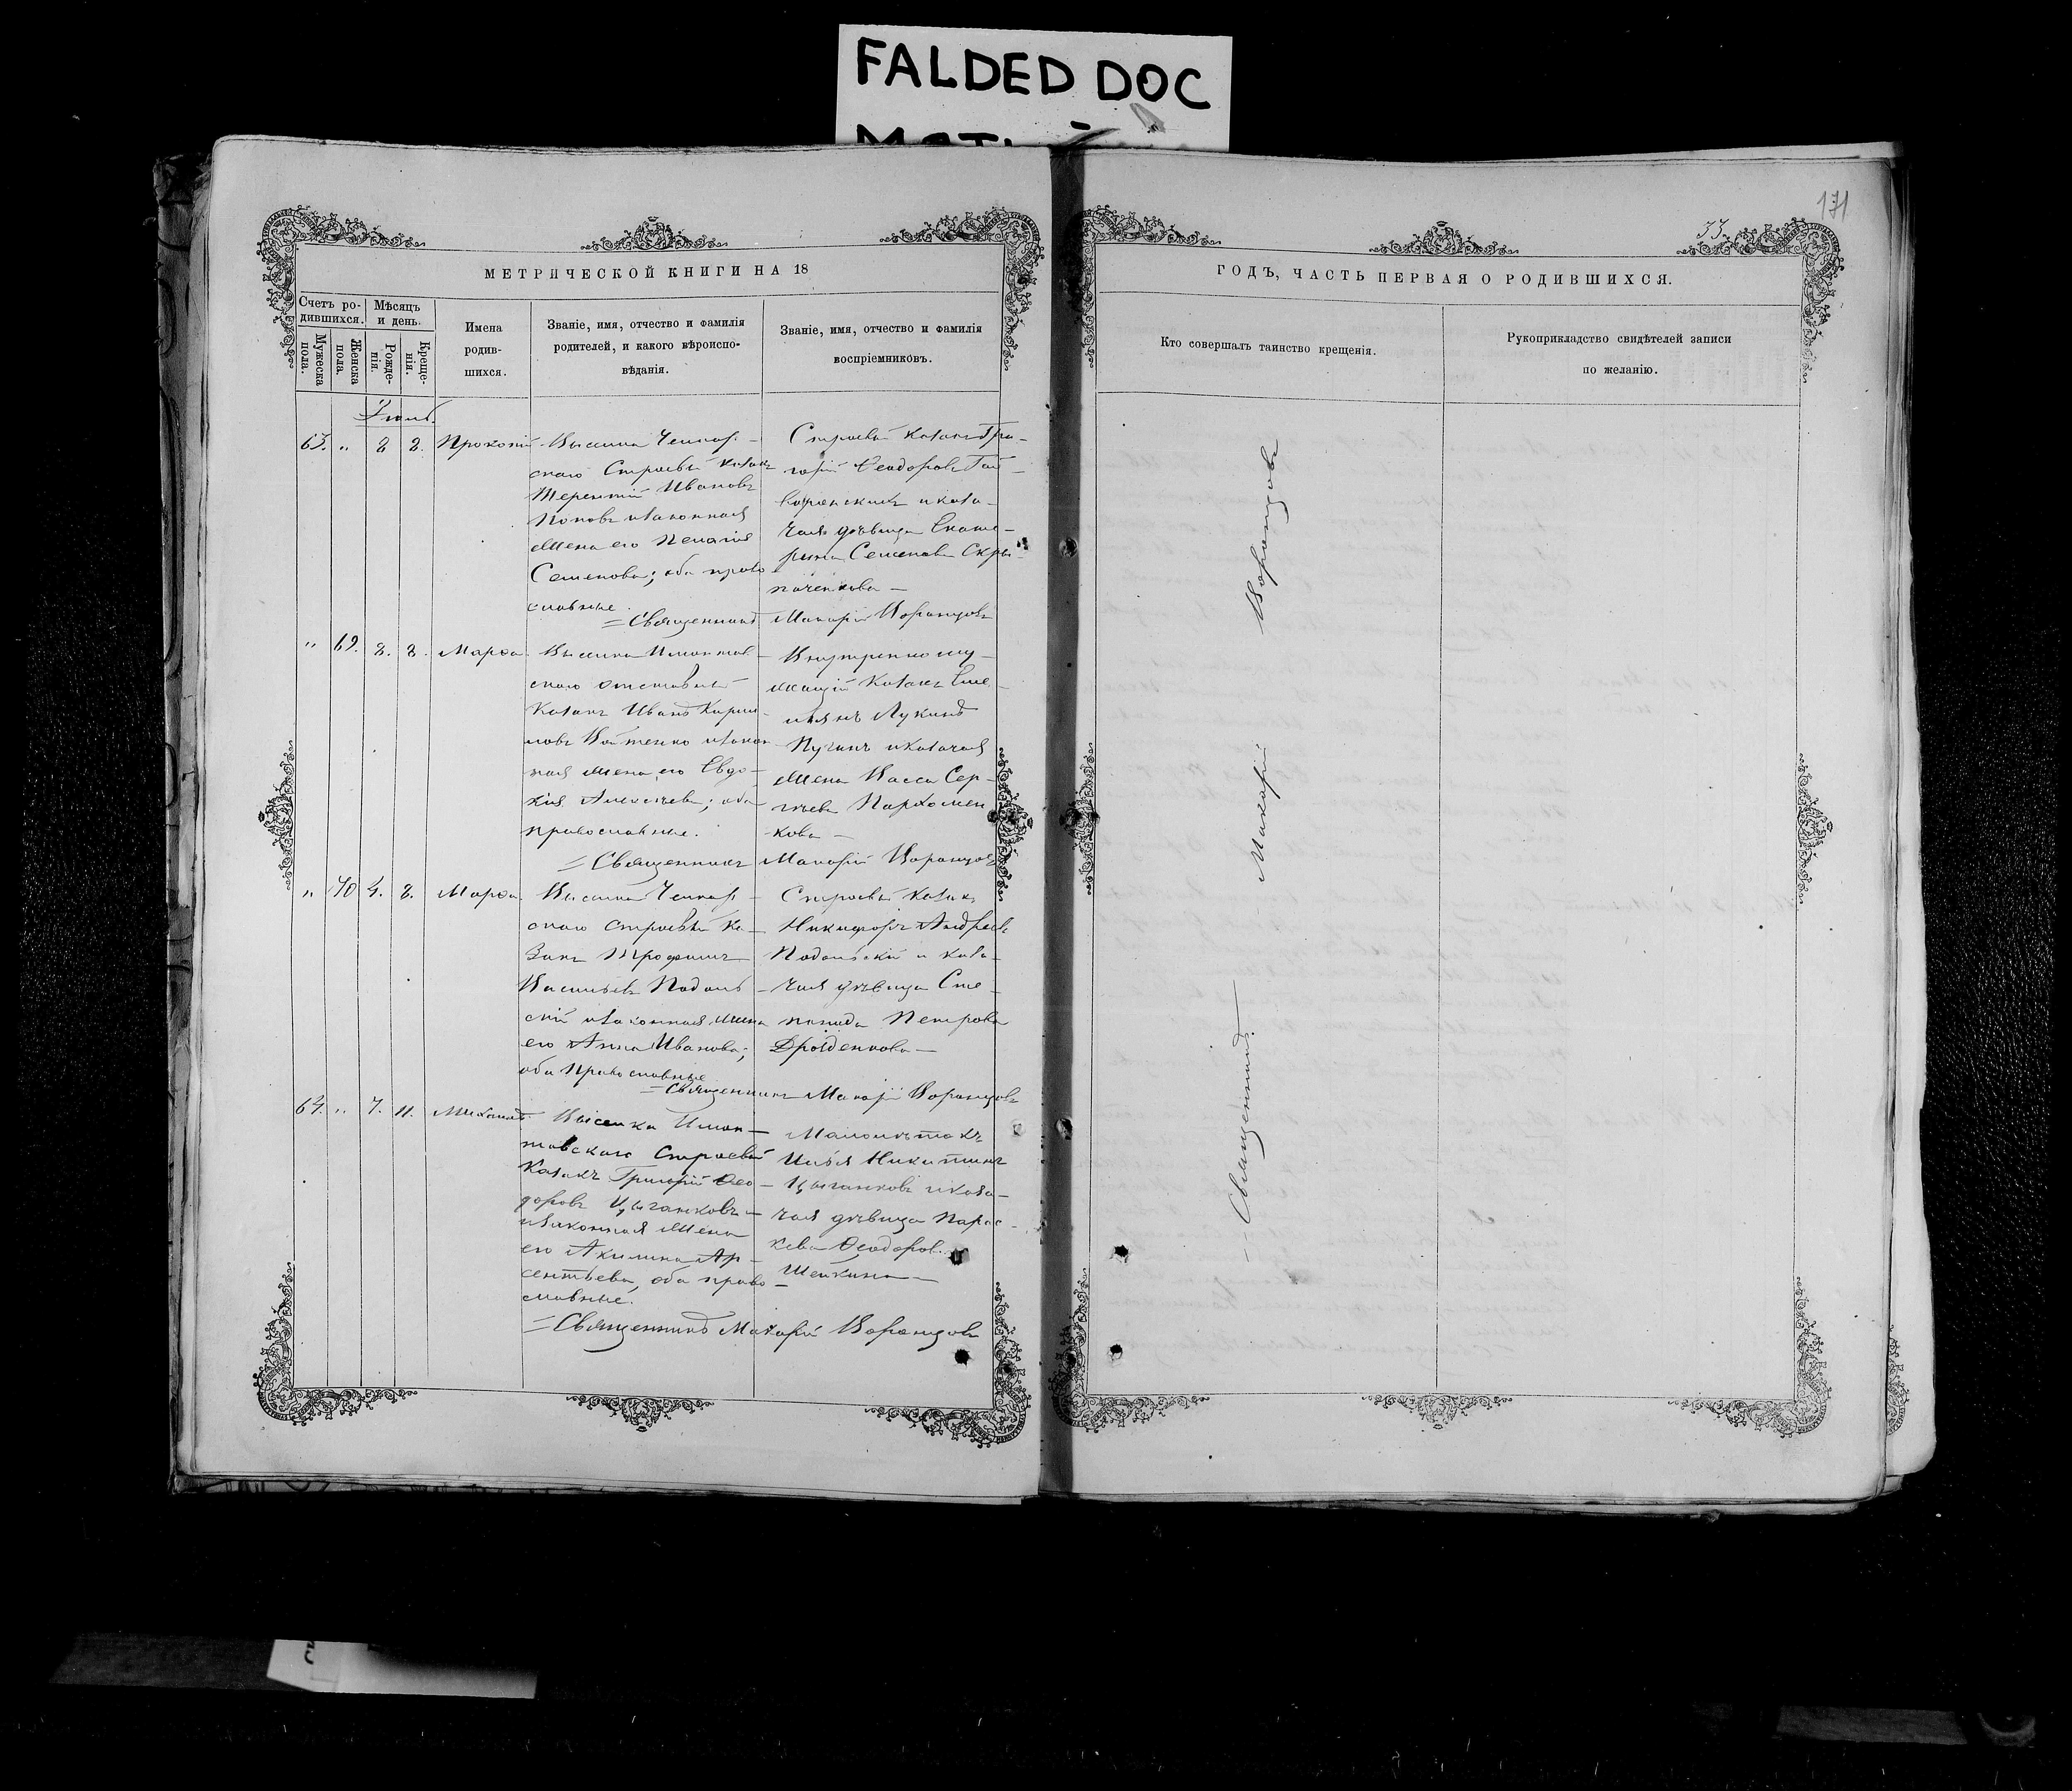 FALDED DOC
171
33
МЕТРИЧЕСКОЙ КНИГИ НА 18
ГОДЪ, ЧАСТЬ ПЕРВАЯ О РОДИВШИХСЯ.
Счетъ ро-
дившихся.
Мужеска
пола.
Женска
пола.
Мѣсяцъ
и день.
Рожде-
нія.
Креще-
нія.
Имена
родив-
шихся.
Званіе, имя, отчество и фамилія
родителей, и какого вѣроиспо-
вѣданія.
Званіе, имя, отчество и фамилія
воспріемниковъ.
Кто совершалъ таинство крещенія.
Рукоприкладство свидѣтелей записи
по желанію.
63. " 8 8. Прокопій
скаго Строевый казакъ
Терентій Ивановъ
Поповъ и законная
жена его Пелагія
Семенова; оба право
славные.
Строевый казакъ Гри-
горій Ѳеодоровъ
и каза-
чая дѣвица Екате-
рина Семенова
=Священникъ Макарій Воронцовъ
" 69. 8. 8. Марѳа.
скаго отставный
казакъ Иванъ Кирил-
ловъ Войтенко и закон
ная жена его Евдо-
кія Алексѣева; оба
православные.
Внутреннослу-
жащій казакъ Еме-
льянъ Лукинъ
и казачая
жена Васса Сер-
гѣева Пархомен
кова —
=Священникъ Макарій Воронцовъ
" 70 4. 8. Марѳа.
скаго строевый ка-
закъ Трофимъ
Васильевъ Подоль-
скій и законная жена
его Анна Иванова;
оба православные
Строевый казакъ
Никифоръ Андреевъ
Подольскій и каза-
чая дѣвица Сте-
панида Петрова
Дрозденкова —
=Священникъ Макарій Воронцовъ
64. " 7. 11. Михаилъ.
товскаго Строевый
казакъ Григорій Ѳео-
доровъ Цыганковъ
и законная жена
его Акилина Ар-
сентьева, оба право-
славные.
Малолѣтокъ
Илья Никитинъ
Цыганковъ и каза-
чая дѣвица Парас-
кева Ѳеодоров.
Шейкина —
=Священникъ Макарій Воронцовъ
Священникъ — Макарій Воронцовъ